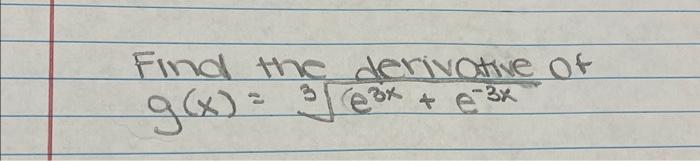 Find the derivative of
g(x) = ∛(e³ˣ + e⁻³ˣ